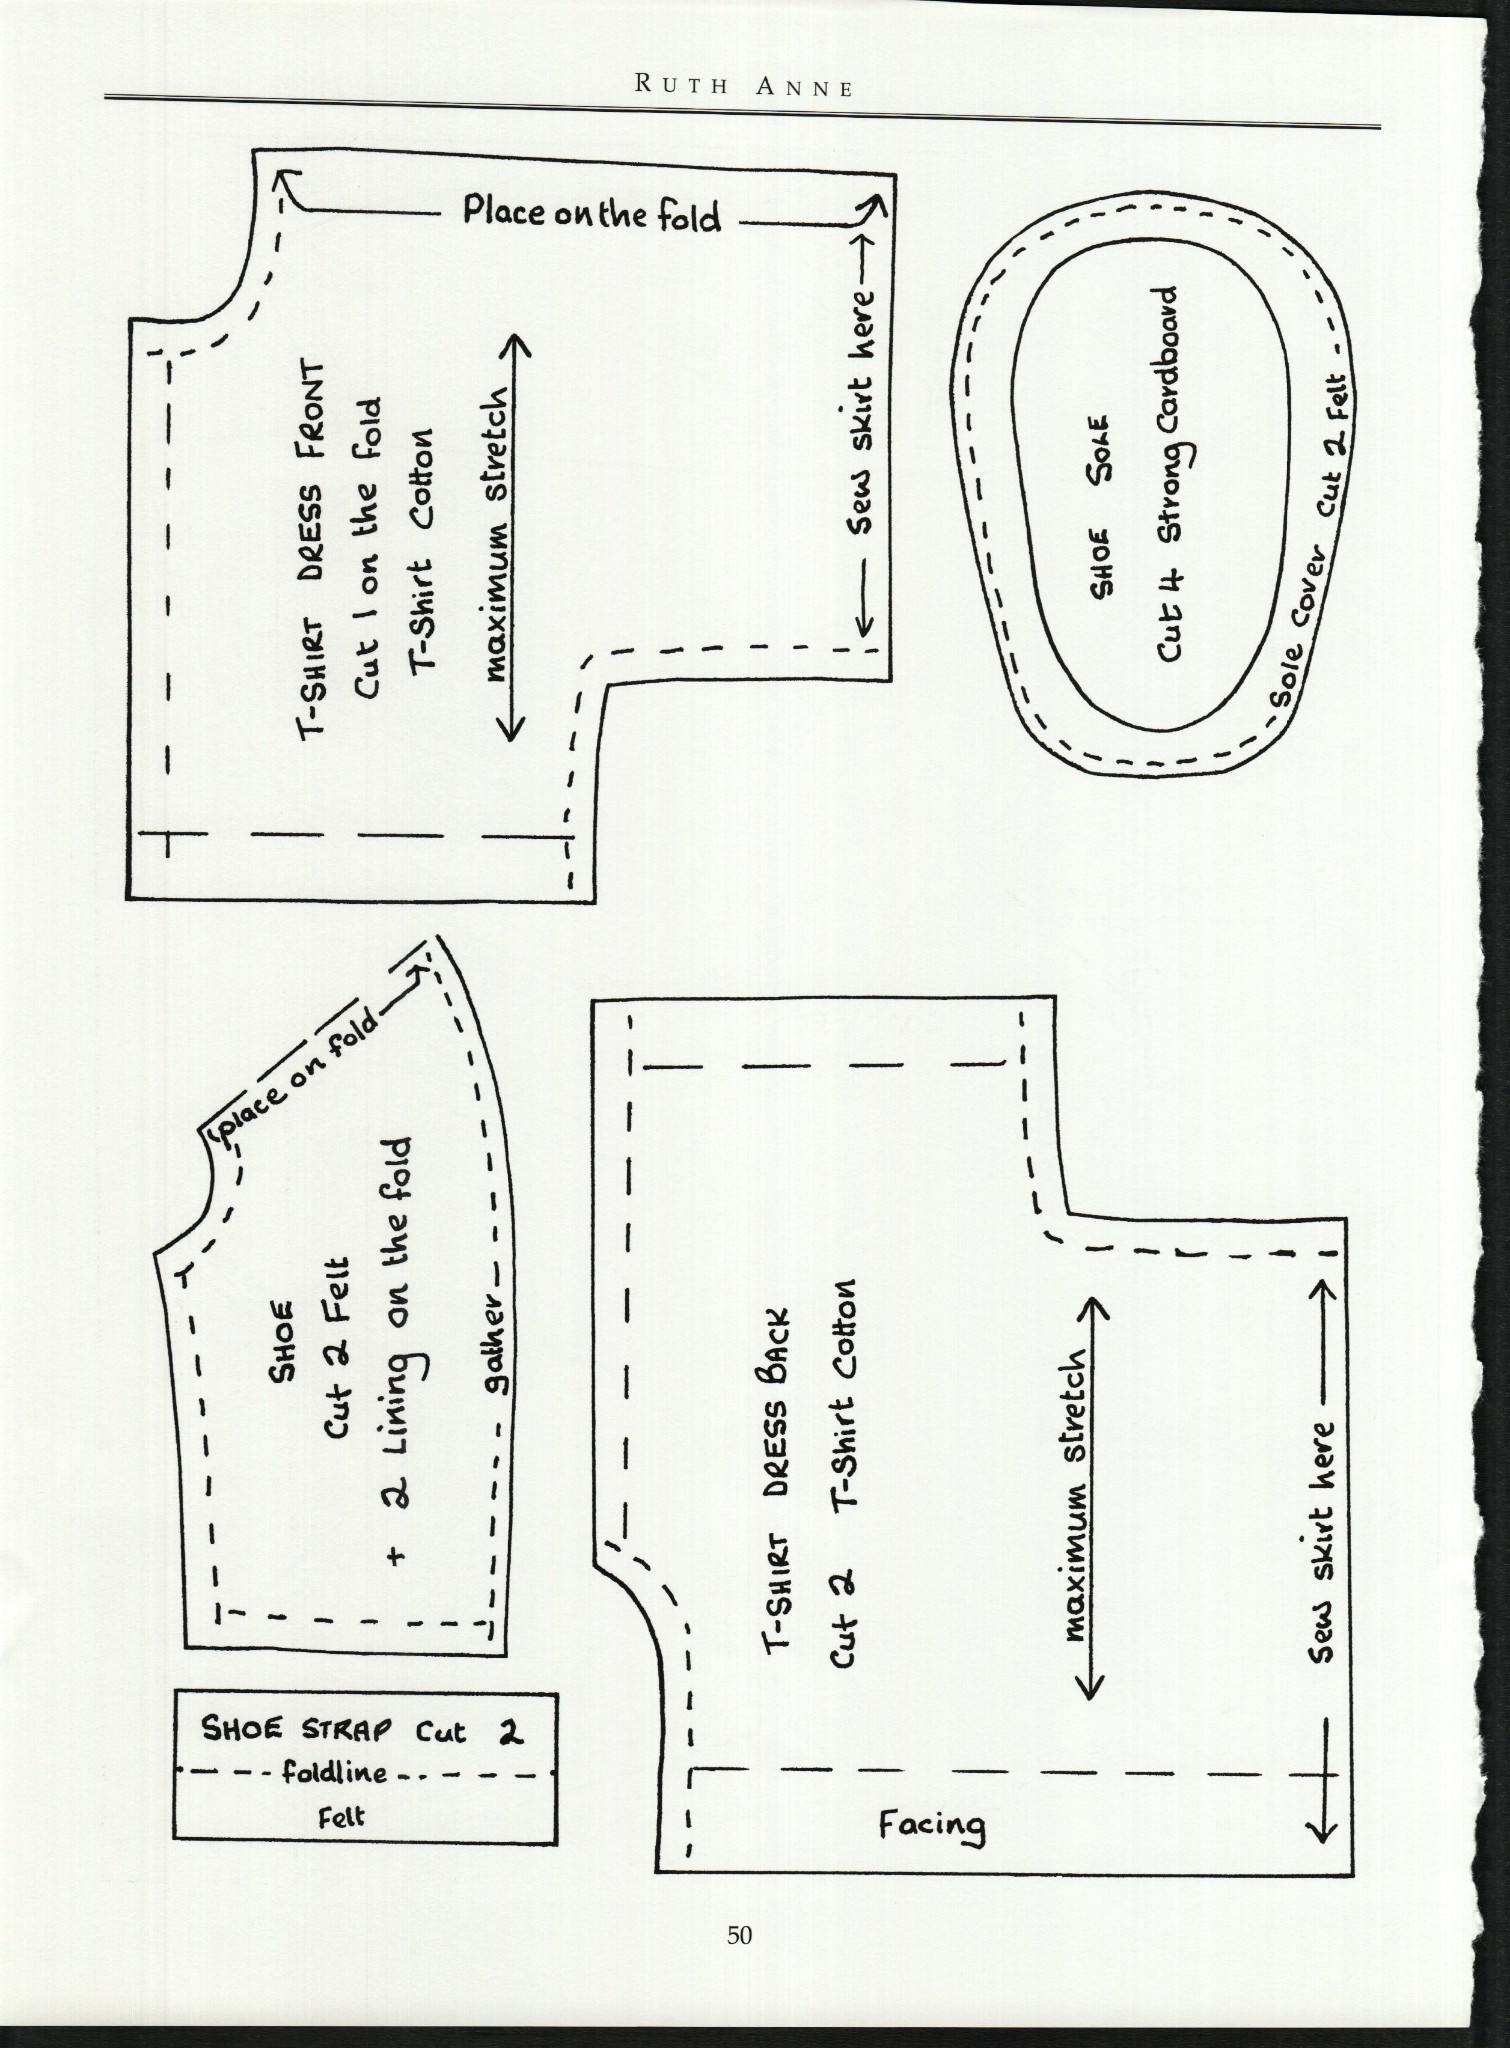 RUTH ANNE
Place on the fold
T-SHIRT DRESS FRONT
Cut 1 on the fold
T-Shirt Cotton
maximum stretch
Sew skirt here
SHOE SOLE
Cut 4 Strong Cardboard
Sole Cover Cut 2 Felt
place on fold
SHOE
Cut 2 Felt
+ 2 Lining on the fold
gather
T-SHIRT DRESS BACK
Cut 2 T-Shirt Cotton
maximum stretch
Sew skirt here
Facing
SHOE STRAP Cut 2
foldline
Felt
50